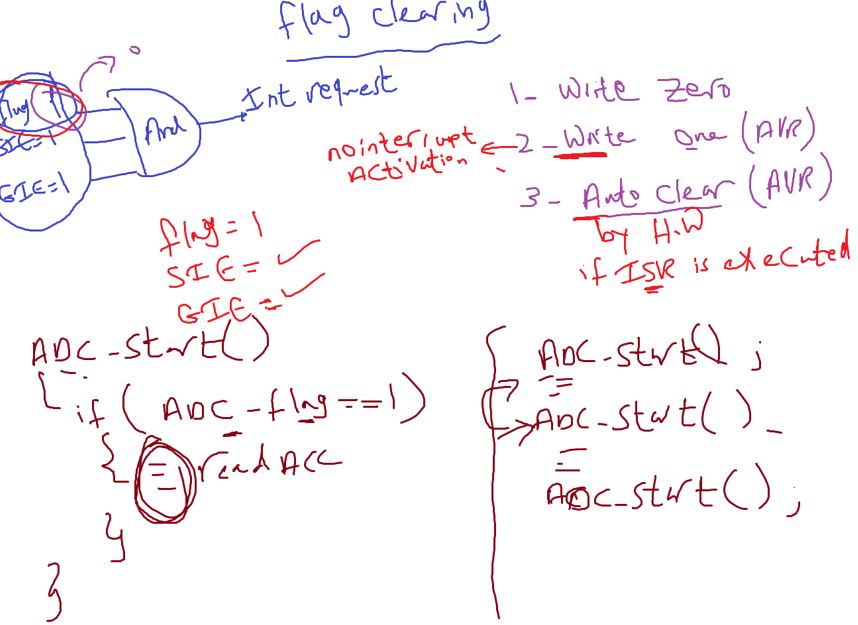 flag clearing
0
flag 1
SIE=1
GIE=1
And
Int request
1- Write Zero
2- Write One (AVR)
no interrupt
Activation
3- Auto clear (AVR)
by H.W
if ISR is executed
flag = 1
SIE = ✓
GIE = ✓
ADC-start()
if ( ADC-flag==1)
{ read ACC
}
}
{ ADC-start() ;
ADC-start() -
ADC-start() ;